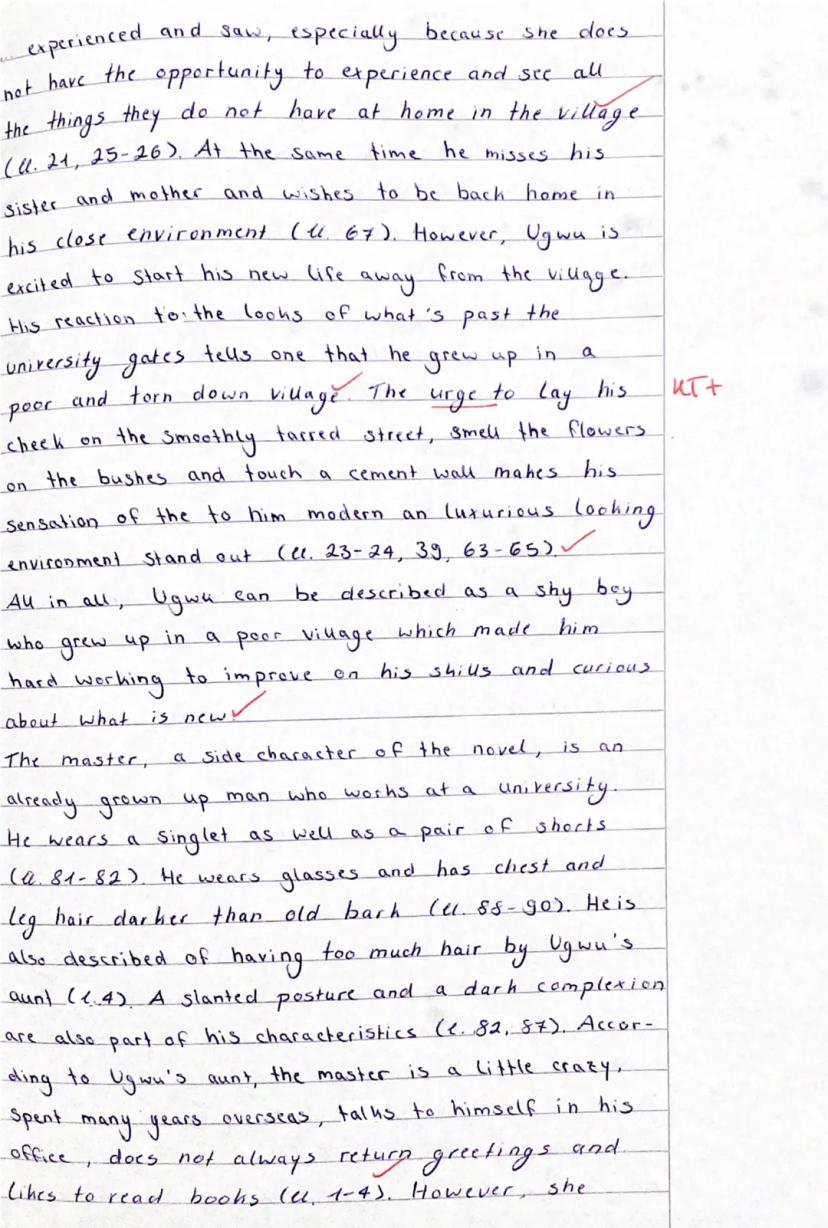 experienced and saw, especially because she does
not have the opportunity to experience and see all
the things they do not have at home in the village
(ll. 21, 25-26). At the same time he misses his
sister and mother and wishes to be back home in
his close environment (ll. 67). However, Ugwu is
excited to start his new life away from the village.
His reaction to the looks of what's past the
university gates tells one that he grew up in a
poor and torn down village. The urge to lay his KT+
cheek on the smoothly tarred street, smell the flowers
on the bushes and touch a cement wall makes his
sensation of the to him modern an luxurious looking
environment stand out (ll. 23-24, 39, 63-65).
All in all, Ugwu can be described as a shy boy
who grew up in a poor village which made him
hard working to improve on his skills and curious
about what is new.
The master, a side character of the novel, is an
already grown up man who works at a university.
He wears a singlet as well as a pair of shorts
(ll. 81-82). He wears glasses and has chest and
leg hair darker than old bark (ll. 88-90). He is
also described of having too much hair by Ugwu's
aunt (l.4). A slanted posture and a dark complexion
are also part of his characteristics (l. 82, 87). Accor-
ding to Ugwu's aunt, the master is a little crazy,
spent many years overseas, talks to himself in his
office, does not always return greetings and
likes to read books (ll. 1-4). However, she